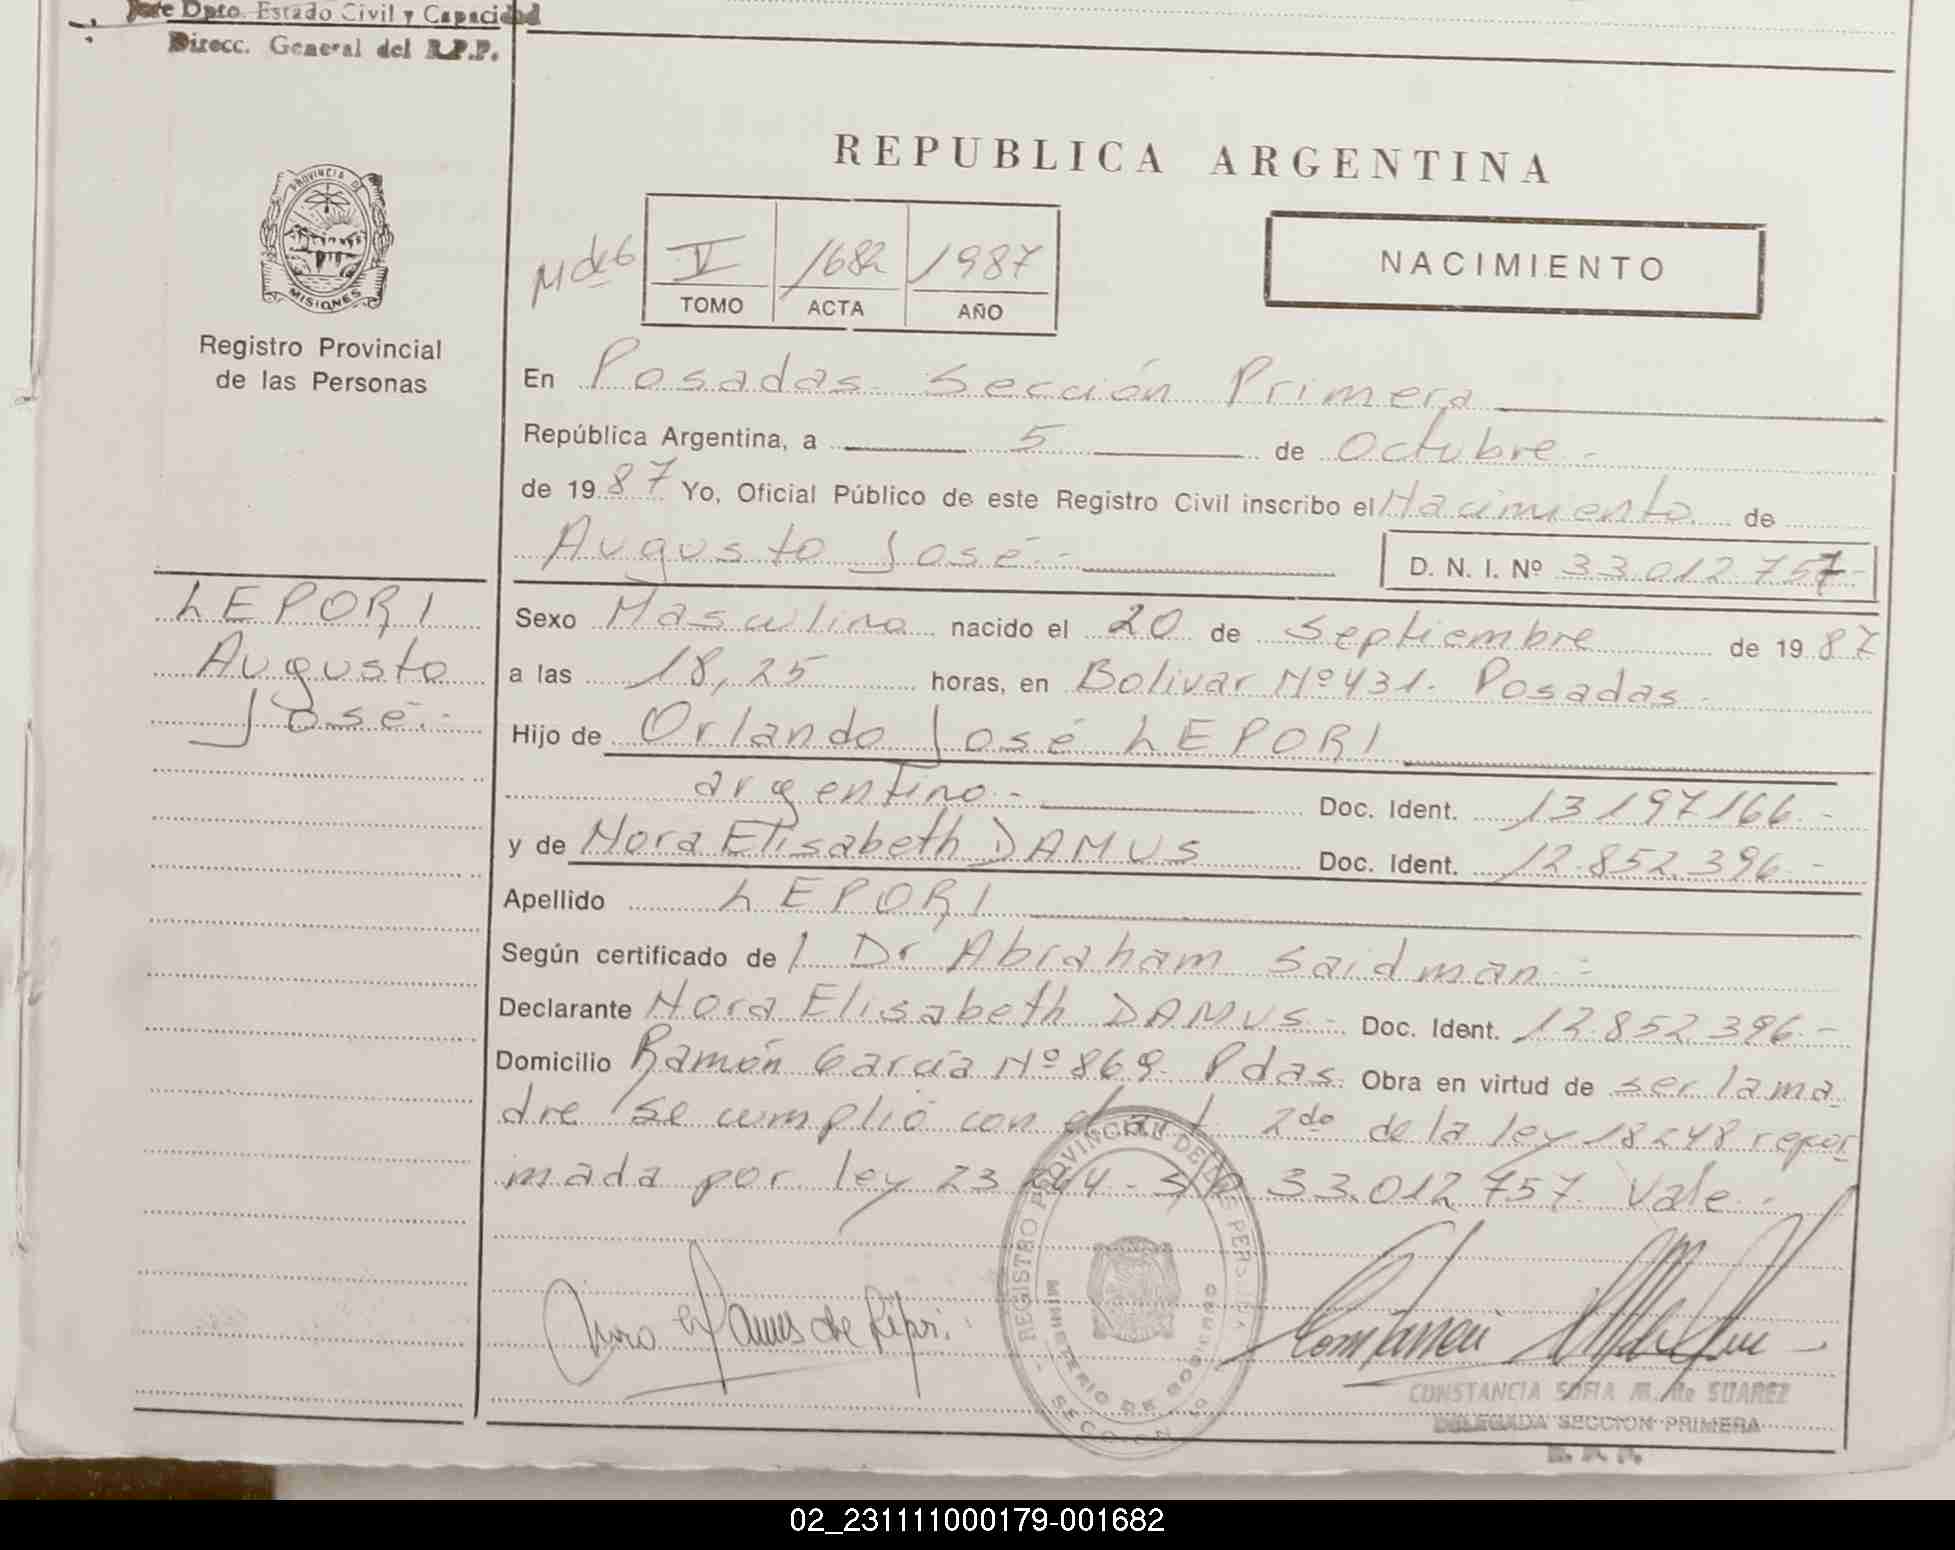 Jefe Dpto. Estado Civil y Capacidad
Direcc. General del R.P.P.
PROVINCIA DE
MISIONES
Registro Provincial
de las Personas
LEPORI
Augusto
José.-
REPUBLICA ARGENTINA
V 1682 1987
TOMO ACTA AÑO
NACIMIENTO
En Posadas Sección Primera
República Argentina, a 5 de Octubre -
de 19 87 Yo, Oficial Público de este Registro Civil inscribo el Nacimiento de
Augusto José.- D. N. I. Nº 33.012.757-
Sexo Masculino nacido el 20 de Septiembre de 19 87
a las 18,25 horas, en Bolivar Nº 431. Posadas -
Hijo de Orlando José LEPORI
argentino.- Doc. Ident. 13197166.-
y de Nora Elisabeth DAMUS Doc. Ident. 12.852.396.-
Apellido LEPORI
Según certificado de l Dr Abraham Saidman -
Declarante Nora Elisabeth DAMUS - Doc. Ident. 12.852.396.-
Domicilio Ramón García Nº 869. Pdas. Obra en virtud de ser la ma
dre Se cumplió con el art. 2do de la ley 18248 refor
mada por ley 23 264 - S/R 33.012.757. Vale -
REGISTRO PROVINCIAL DE LAS PERSONAS
MINISTERIO DE GOBIERNO
SECCION 1ª
CONSTANCIA SOFIA M. de SUAREZ
DELEGADA SECCION PRIMERA
R. P. P.
02_231111000179-001682